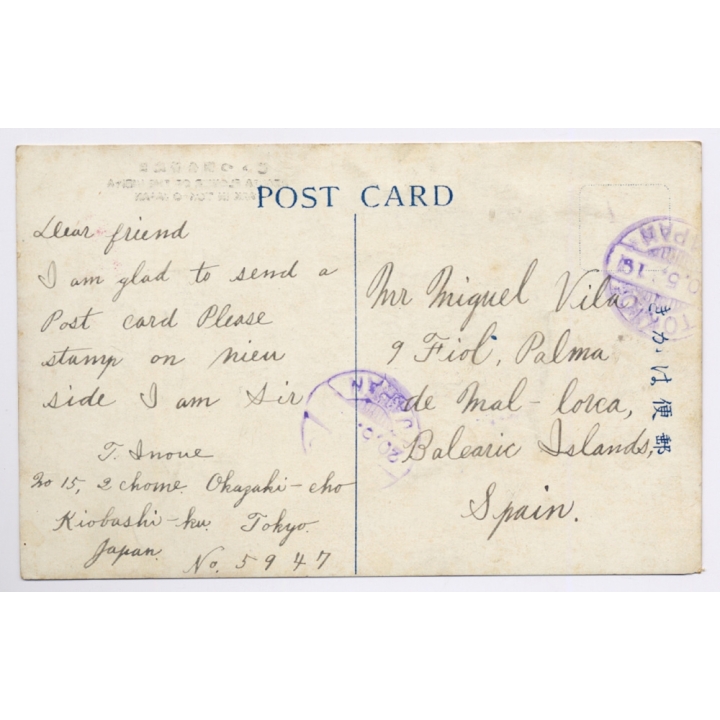 POST CARD
Dear friend
I am glad to send a
Post card Please
stamp on nieu
side I am Sir
T. Inoue
No 15, 2 chome Okazaki-cho
Kiobashi-ku. Tokyo.
Japan.
No. 5947
Mr Miguel Vila
9 Fiol, Palma
de Mal-lorca,
Balearic Islands,
Spain.
きかは便郵
JAPAN
TOKYO
JAPAN